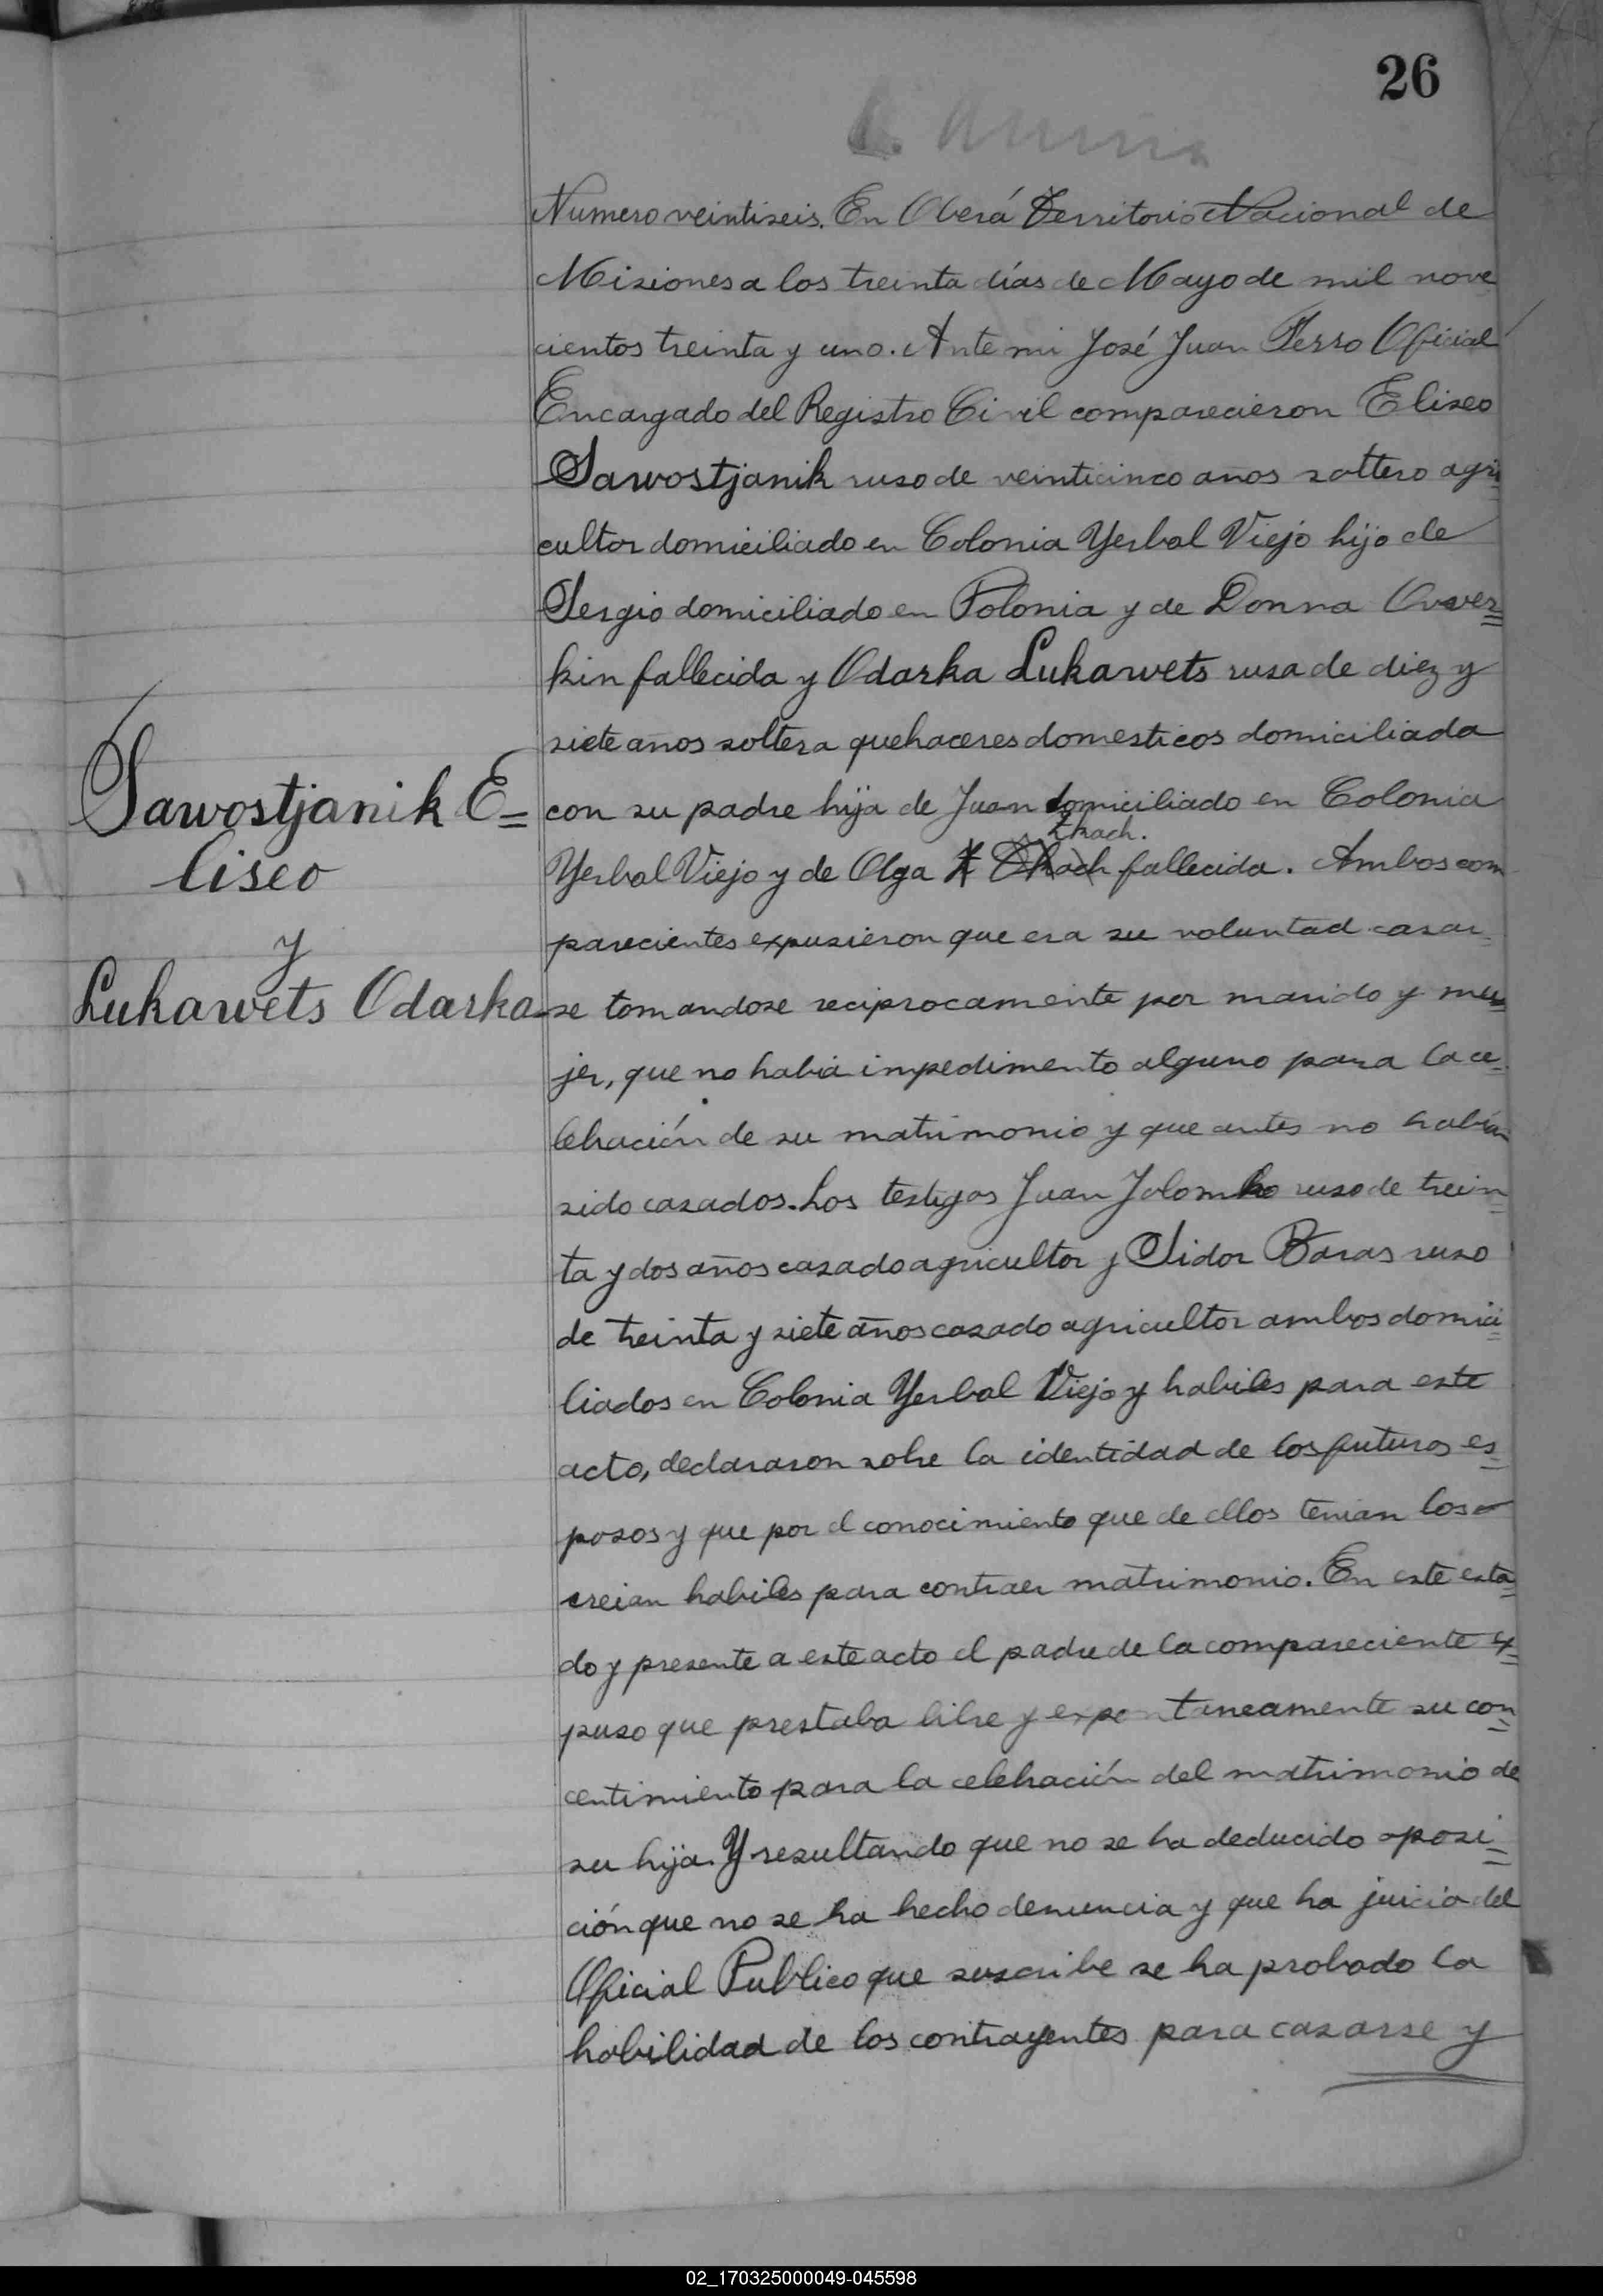 26
Numero veintiseis. En Oberá Territorio Nacional de
Misiones a los treinta días de Mayo de mil nove
cientos treinta y uno. Ante mi José Juan Ferro Oficial
Encargado del Registro Civil comparecieron Eliseo
Sawostjanik ruso de veinticinco años soltero agri
cultor domiciliado en Colonia Yerbal Viejo hijo de
Sergio domiciliado en Polonia y de Donna
kin fallecida y Odarka Lukawets rusa de diez y
siete años soltera quehaceres domesticos domiciliada
Sawostjanik E=
liseo
y
Lukawets Odarka
con su padre hija de Juan domiciliado en Colonia
Zkach.
Yerbal Viejo y de Olga fallecida. Ambos com
parecientes expusieron que era su voluntad casar-
se tomandose reciprocamente por marido y mu=
jer, que no habia impedimento alguno para la ce=
lebración de su matrimonio y que antes no habian
sido casados. Los testigos Juan Jolomko ruso de trein=
ta y dos años casado agricultor y Sidor Baras ruso
de treinta y siete años casado agricultor ambos domici=
liados en Colonia Yerbal Viejo y habiles para este
acto, declararon sobre la identidad de los futuros es=
posos y que por el conocimiento que de ellos tenian los
creian habiles para contraer matrimonio. En este esta=
do y presente a este acto el padre de la compareciente ex=
puso que prestaba libre y expontaneamente su con=
centimiento para la celebración del matrimonio de
su hija. Y resultando que no se ha deducido oposi=
ción que no se ha hecho denuncia y que ha juicio del
Oficial Publico que suscribe se ha probado la
habilidad de los contrayentes para casarse y
02_170325000049-045598